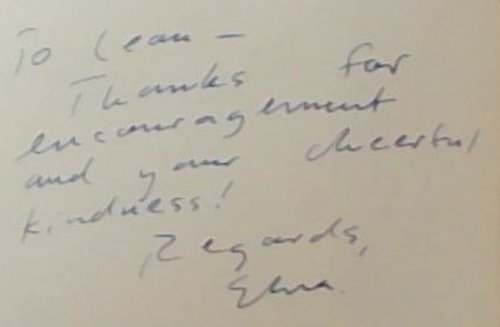 To Lean –
Thanks for
encouragement
and your cheerful
kindness!
Regards,